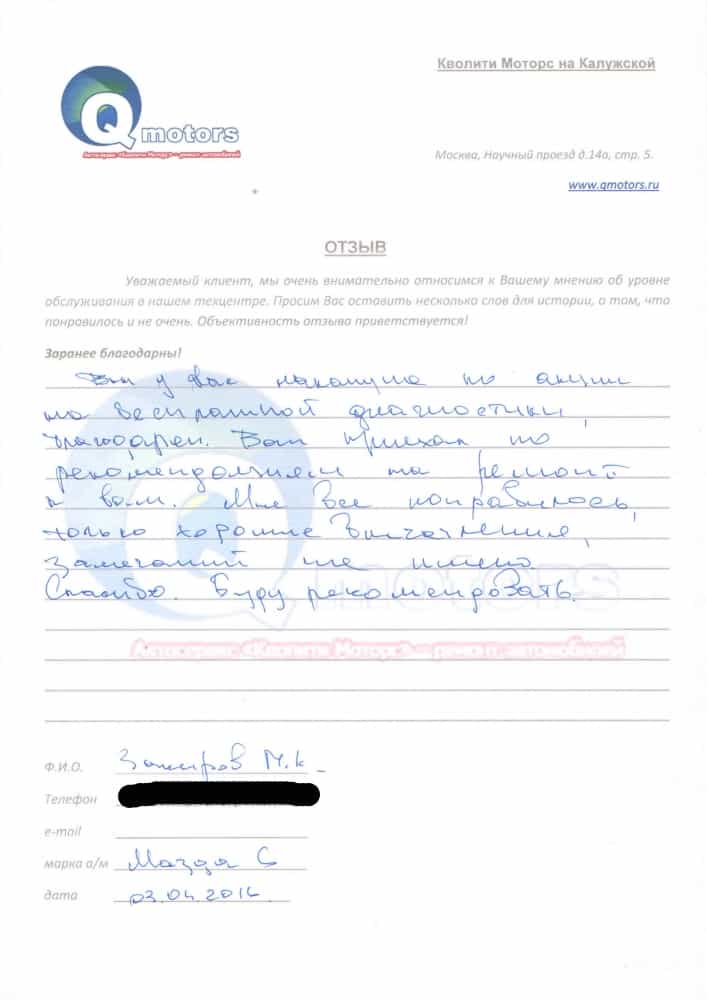 Кволити Моторс на Калужской
Q motors
Автосервис «Кволити Моторс» — ремонт автомобилей
Москва, Научный проезд д.14а, стр. 5.
www.qmotors.ru
ОТЗЫВ
Уважаемый клиент, мы очень внимательно относимся к Вашему мнению об уровне
обслуживания в нашем техцентре. Просим Вас оставить несколько слов для истории, о том, что
понравилось и не очень. Объективность отзыва приветствуется!
Заранее благодарны!
Был у Вас накануне по акции
на бесплатной диагностики,
благодарен. Вот приехал по
рекомендациям на ремонт
к вам. Мне все понравилось,
только хорошие впечатления,
замечаний не имею.
Спасибо. Буду рекомендовать.
motors
Автосервис «Кволити Моторс» — ремонт автомобилей
Ф.И.О. М.К
Телефон
e-mail
марка а/м Мазда 6
дата 03.04.2016